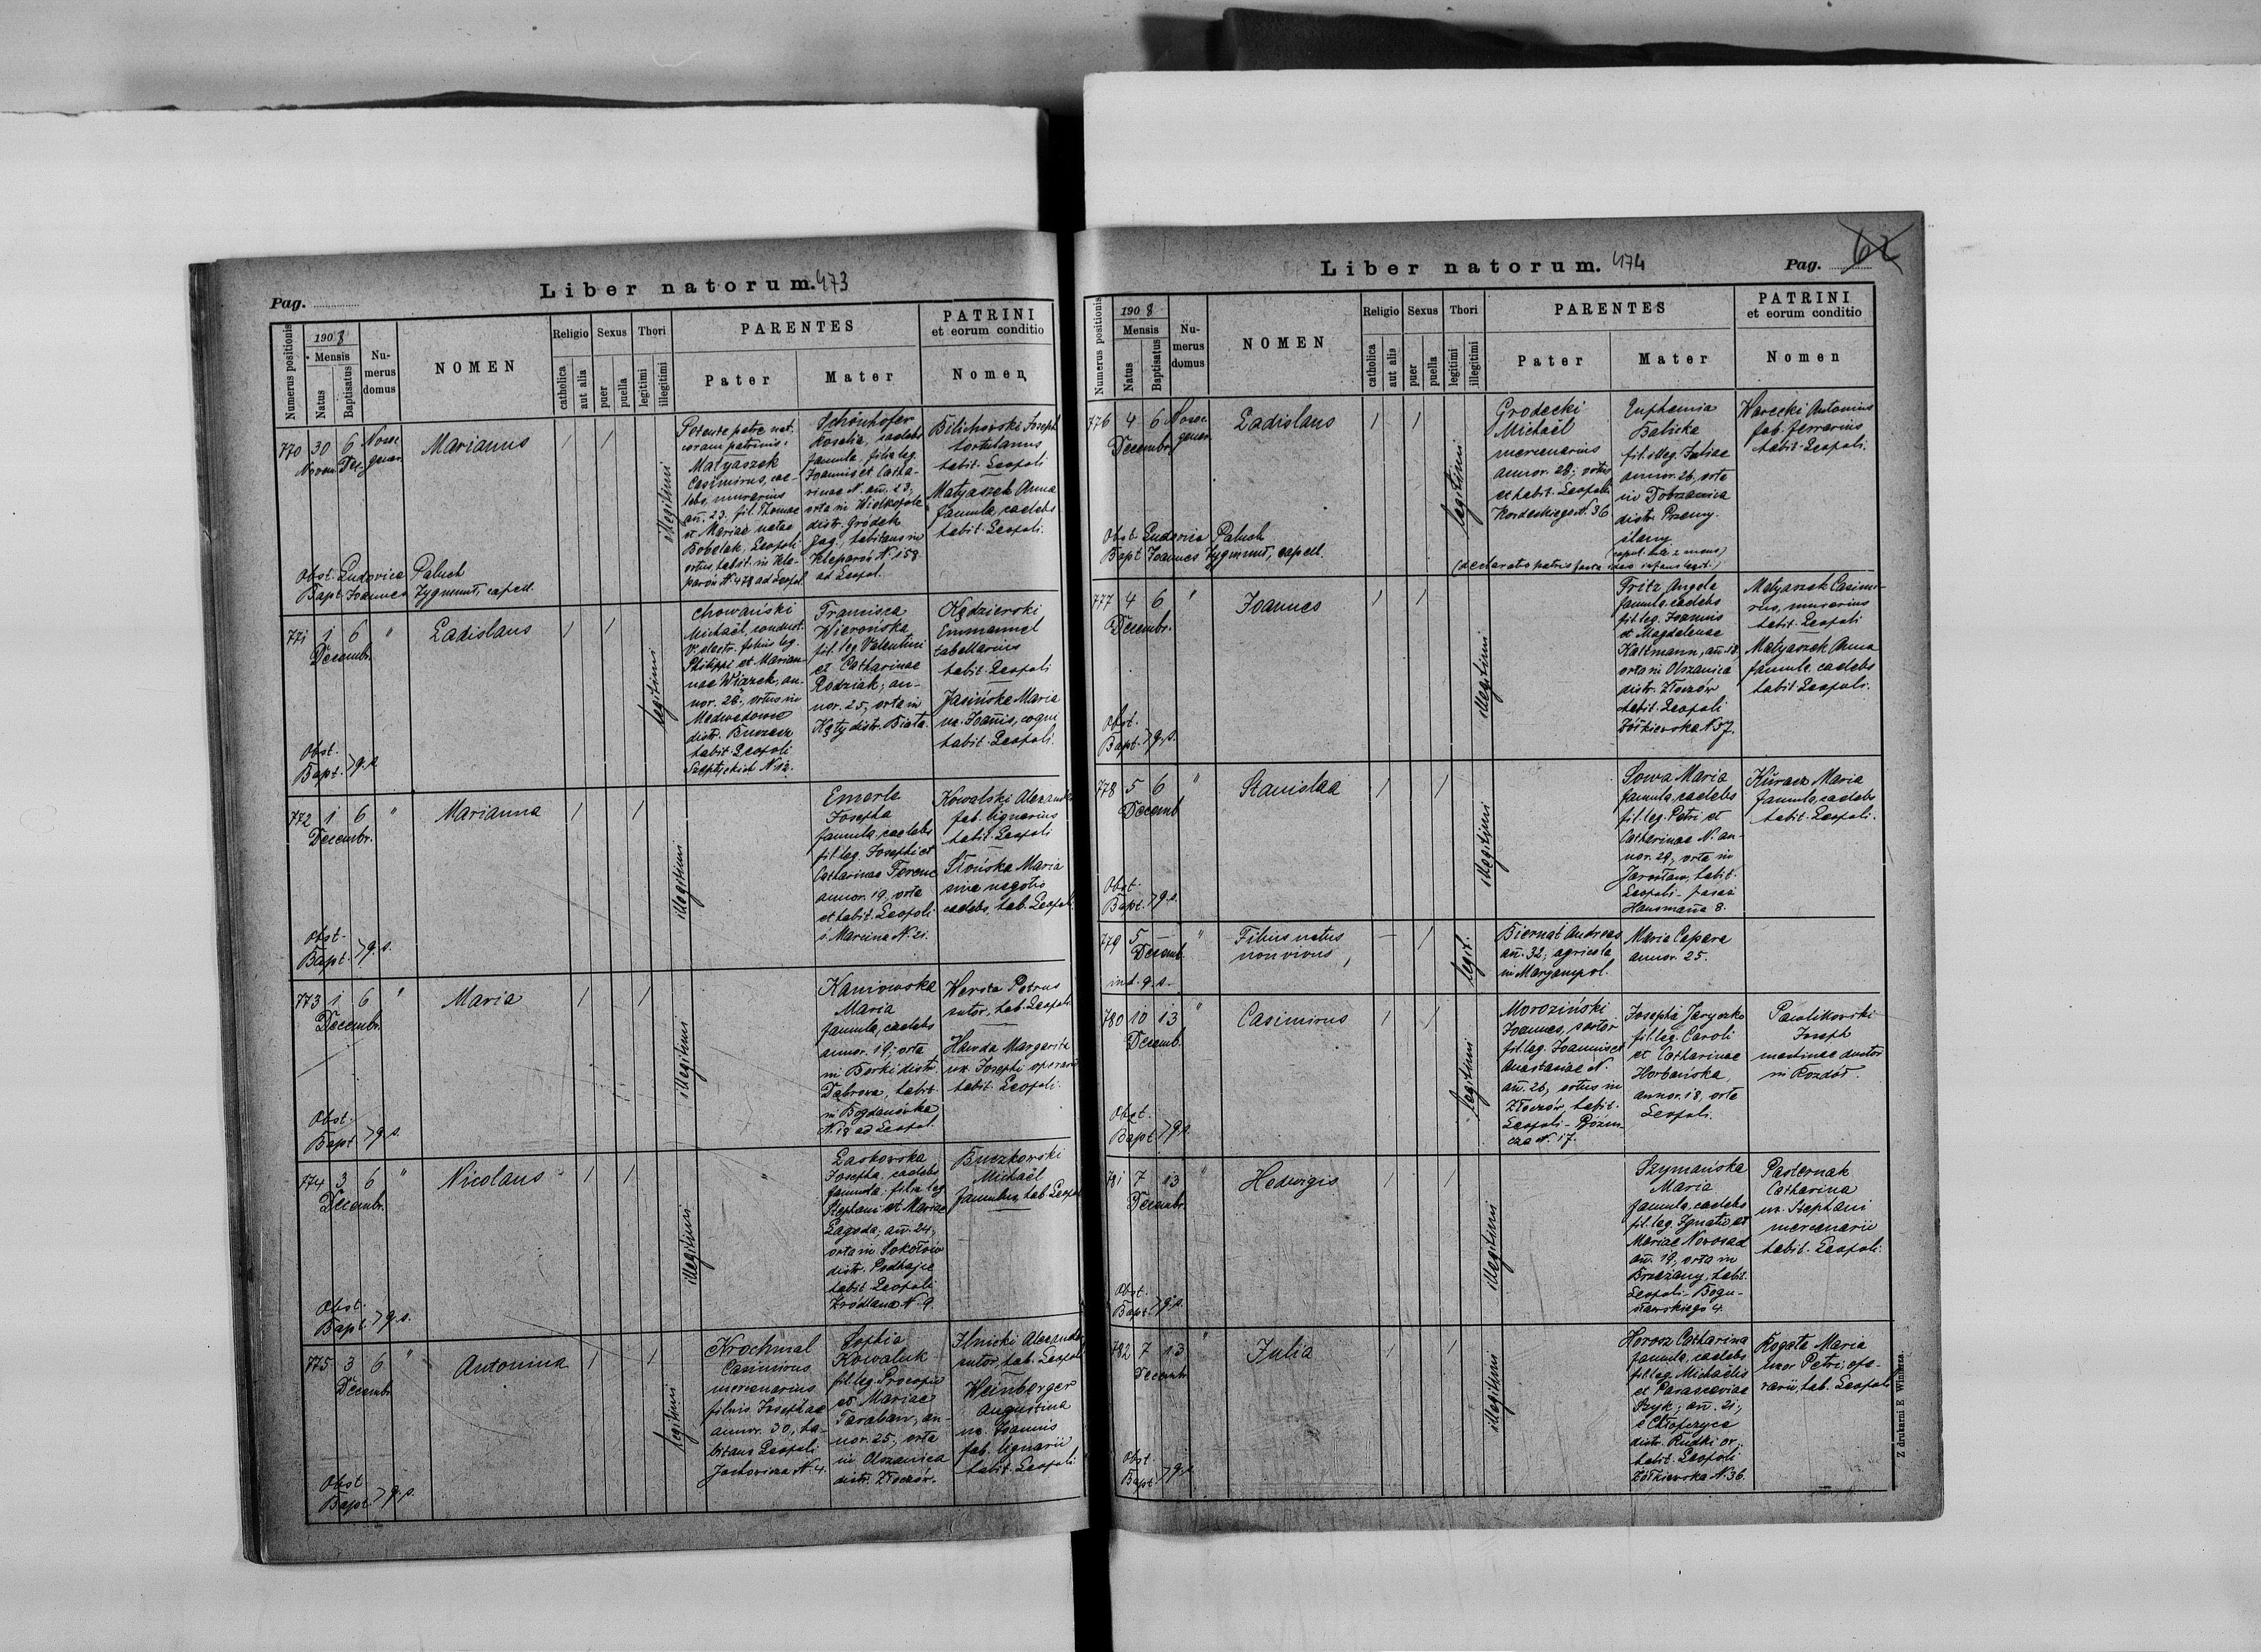 Pag.
Liber natorum. 473
Numerus positionis
1908
Mensis
Natus
Baptisatus
Nu-
merus
domus
NOMEN
Religio
catholica
aut alia
Sexus
puer
puella
Thori
legitimi
illegitimi
PARENTES
Pater
Mater
PATRINI
et eorum conditio
Nomen
770
30
Novem.
6
Dec.
Nosoc.
gener.
Marianus
1
1
illegitimi
Petente patre nat.
coram patrinis:
Matyaszek
Casimirus, cae-
lebs, murarius
añ. 23, fil. Thomae
et Mariae natae
Bobelak, Leopoli
ortus, habit. in Kle-
parów N. 478 ad Leopol.
Schönhofer
Rosalia, caelebs
famula, filia leg.
Joannis et Catha-
rinae N. añ. 23,
orta in Wielkopole
distr. Gródek
Jag., habitans in
Kleparów N. 158
ad Leopol.
Bilichowski Joseph
hortulanus
habit. Leopoli
Matyaszek Anna
famula, caelebs
habit. Leopoli.
Obst. Ludovica Paluch
Bapt. Joannes Zygmunt, capell.
771
1
6
Decembr.
"
Ladislaus
1
1
legitimi
Chowański
Michaël, conduct.
v. electr. filius leg.
Philippi et Marian-
nae Wiązek, an-
nor. 28, ortus in
Medwedowce
distr. Buczacz
habit. Leopoli
Szeptyckich N. 12.
Francisca
Wierońska
fil. leg. Valentini
et Catharinae
Rodziak, an-
nor. 25, orta in
Kęty distr. Biała.
Kędzierski
Emmanuel
tabellarius
habit. Leopoli
Jasińska Maria
ux. Joañis, cogn.
habit. Leopoli.
Obst.
Bapt. > q. s.
772
1
6
Decembr.
"
Marianna
1
1
illegitimi
Emerle
Josepha
famula, caelebs
fil. leg. Josephi et
Catharinae Ferenc
annor. 19, orta
et habit. Leopoli
ś. Marcina N. 21.
Kowalski Alexander
fab. lignarius
habit. Leopoli
Słońska Maria
sine negotio
caelebs, hab. Leopoli.
Obst.
Bapt. > q. s.
773
1
6
Decembr.
"
Maria
1
1
illegitimi
Kaniowska
Maria
famula, caelebs
annor. 19, orta
in Borki distr.
Dąbrowa, habit.
in Bogdanówka
N. 18 ad Leopol.
Wersta Petrus
sutor, hab. Leopoli
Hawda Margarita
ux. Josephi operarii
habit. Leopoli.
Obst.
Bapt. > q. s.
774
3
6
Decembr.
"
Nicolaus
1
1
illegitimi
"
Laskowska
Josepha, caelebs
famula, filia leg.
Stephani et Mariae
Lagoda, añ. 24,
orta in Sokołów
distr. Podhajce
habit. Leopoli
Źródlana N. 9.
Buczkowski
Michaël
famulus, hab. Leopoli
Obst.
Bapt. > q. s.
775
3
6
Decembr.
"
Antonina
1
1
legitimi
Krochmal
Casimirus
mercenarius
filius Josephae
annor. 30, ha-
bitans Leopoli
Jachowicza N. 4.
Sophia
Kowaluk
fil. leg. Procopii
et Mariae
Taraban, an-
nor. 25, orta
in Olszanica
distr. Złoczów.
Ilnicki Alexander
sutor, hab. Leopoli
Weinberger
Augustina
ux. Joannis
fab. lignarii
habit. Leopoli
Obst.
Bapt. > q. s.
Liber natorum. 474
Pag. 62
Numerus positionis
1908
Mensis
Natus
Baptisatus
Nu-
merus
domus
NOMEN
Religio
catholica
aut alia
Sexus
puer
puella
Thori
legitimi
illegitimi
PARENTES
Pater
Mater
PATRINI
et eorum conditio
Nomen
776
4
6
Decembr.
Nosoc.
gener.
Ladislaus
1
1
legitimi
Grodecki
Michaël
mercenarius
annor. 28, ortus
et habit. Leopoli
Kordeckiego N. 36.
Euphemia
Balicka
fil. illeg. Juliae
annor. 26, orta
in Dobrzanica
distr. Przemy-
ślany
Warecki Antonius
fab. ferrarius
habit. Leopoli.
Obst. Ludovica Paluch
Bapt. Joannes Zygmunt, capell.
(declaratio patris facta ideo infans legit.)
777
4
6
Decembr.
"
Joannes
1
1
illegitimi
Fritz Angela
famula, caelebs
fil. leg. Joannis
et Magdalenae
Kaltmann, añ. 18,
orta in Olszanica
distr. Złoczów
habit. Leopoli
Żółkiewska N. 37.
Matyaszek Casimi-
rus, murarius
habit. Leopoli
Matyaszek Anna
famula, caelebs
habit. Leopoli.
Obst.
Bapt. > q. s.
778
5
6
Decemb.
"
Stanislaa
1
1
illegitimi
Sowa Maria
famula, caelebs
fil. leg. Petri et
Catharinae N. an-
nor. 29, orta in
Jarosław, habit.
Leopoli - pasaż
Hausmaña 8.
Kuracz Maria
famula, caelebs
habit. Leopoli.
Obst.
Bapt. > q. s.
779
5
—
Decemb.
"
Filius natus
non vivus
—
1
legit.
Biernat Andreas
añ. 32, agricola
in Maryampol.
Maria Capara
annor. 25.
ind. q. s.
780
10
13
Decemb.
"
Casimirus
1
1
legitimi
Moroziński
Joannes, sartor
fil. leg. Joannis et
Anastasiae N.
añ. 26, ortus in
Złoczów, habit.
Leopoli -
N. 17.
Josepha Jaryczko
fil. leg. Caroli
et Catharinae
Horbańska,
annor. 18, orta
Leopoli.
Pawlikowski
Joseph
machinae ductor
in Rozdół.
Obst.
Bapt. > q. s.
781
7
13
Decembr.
"
Hedvigis
1
1
illegitimi
Szymańska
Maria
famula, caelebs
fil. leg. Ignatii et
Mariae Nowosad
añ. 19, orta in
Brzeżany, habit.
Leopoli - Bogu-
sławskiego 4.
Pasternak
Catharina
ux. Stephani
mercenarii
habit. Leopoli.
Obst.
Bapt. > q. s.
782
7
13
Decembr.
"
Julia
1
1
illegitimi
Horosz Catharina
famula, caelebs
fil. leg. Michaëlis
et Parasceviae
Szyk, añ. 21,
e Chłopczyce
distr. Rudki or.
habit. Leopoli
Żółkiewska N. 36.
Rogata Maria
uxor Petri, ope-
rarii, hab. Leopoli
Obst.
Bapt. > q. s.
Z drukarni E. Winiarza.